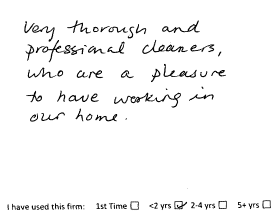 Very thorough and
professional cleaners,
who are a pleasure
to have working in
our home.
I have used this firm: 1st Time ☐ <2 yrs ☑ 2-4 yrs ☐ 5+ yrs ☐